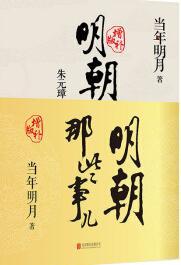 增补版
明朝
当年明月 著
朱元璋
增补版
明朝
那些事儿
当年明月 著